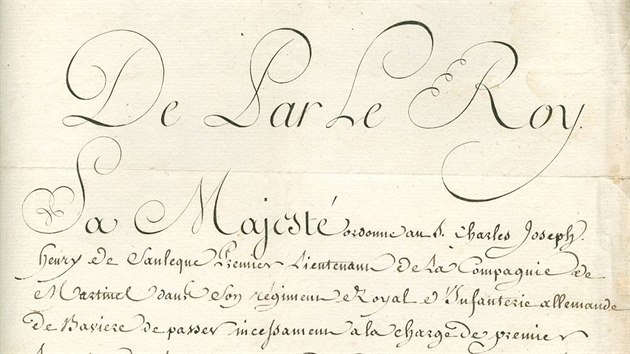 De Par Le Roy.
Sa Majesté ordonne au S. Charles Joseph
henry de Sanleque Premier Lieutenant de la Compagnie de
Martinel dans son régiment Royal d'Infanterie allemande
de Baviere de passer incessament a la charge de premier